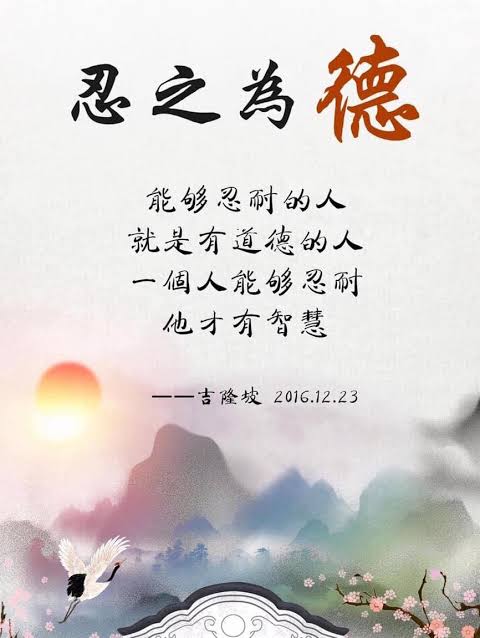 忍之為德
能够忍耐的人
就是有道德的人
一個人能够忍耐
他才有智慧
——吉隆坡 2016.12.23